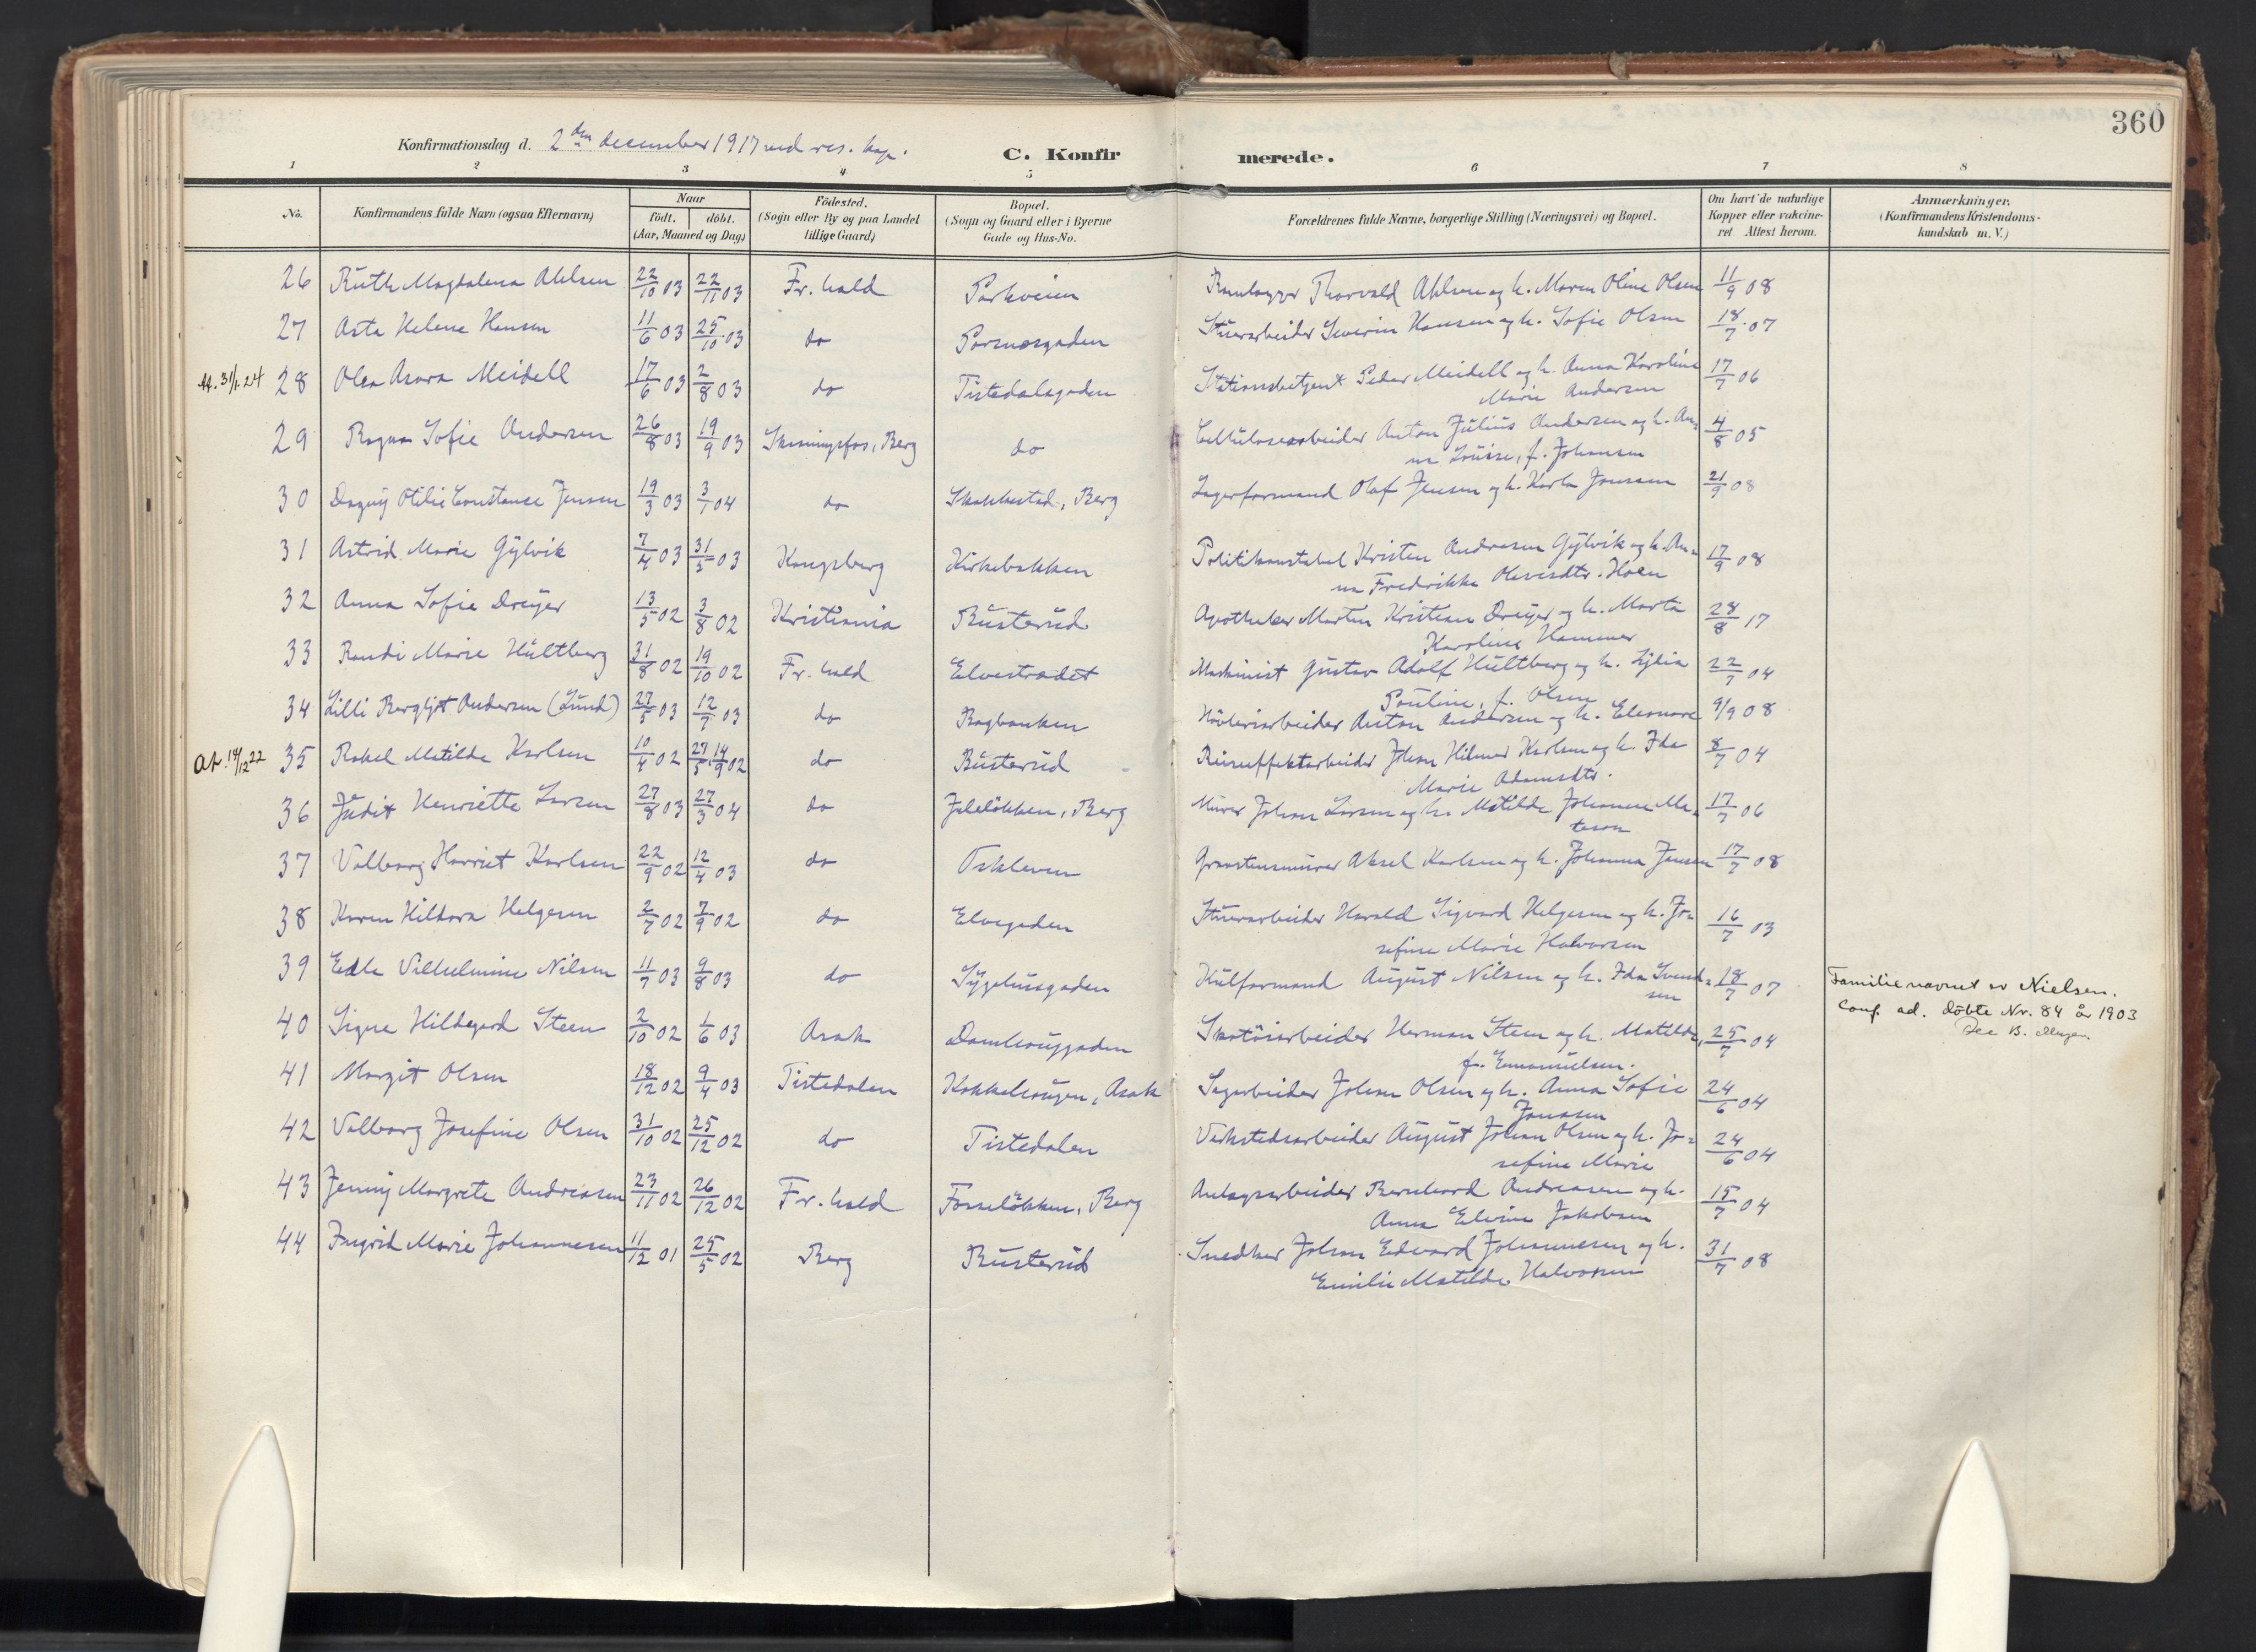 360
Konfirmationsdag d. 2den december 1917 ved res. kap.
C. Konfirmerede.
1 2 3 4 5 6 7 8
No.
Konfirmandens fulde Navn (ogsaa Efternavn)
Naar
födt. döbt.
(Aar, Maaned og Dag)
Födested.
(Sogn eller By og paa Landet
tillige Gaard)
Bopæl.
(Sogn og Gaard eller i Byerne
Gade og Hus-No.
Forældrenes fulde Navne, borgerlige Stilling (Næringsvei) og Bopæl.
Om havt de naturlige
Kopper eller vakcine-
ret Attest herom.
Anmærkninger.
(Konfirmandens Kristendoms-
kundskab m. V.)
26 Ruth Magdalena Ahlsen 22/10 03 22/11 03 Fr. hald Parkveien Thorvald Ahlsen og h. Maren Oline Olsen 11/9 08
27 Asta Helene Hansen 11/6 03 25/10 03 do Stuerarbeider Severin Hansen og h. Sofie Olsen 18/7 07
28 Olea Asora Meidell 17/6 03 2/8 03 do Tistedalsgaden Stationsbetjent Peder Meidell og h. Anna Karoline 17/7 06
Marie Andersen
29 Ragna Sofie Andersen 26/8 03 19/9 03 Skonningsfos, Berg do Cellulosearbeider Anton Julius Andersen og h. An= 4/8 05
na Louise, f. Johansen
30 Dagny Otilie Constance Jensen 19/3 03 3/1 04 do Skakkestad, Berg Lagerformand Olaf Jensen og h. Karla Jonsson 21/9 08
31 Astrid Marie Gylvik 7/4 03 31/5 03 Kongsberg Kirkebakken Politikonstabel Kristen Andresen Gylvik og h. An= 17/9 08
na Fredrikke Olavesdtr. Hoen
32 Anna Sofie Dreyer 13/5 02 3/8 02 Kristiania Busterud Apotheker Morten Kristian Dreyer og h. Marta 28/8 17
Karoline Hammer
33 Randi Marie Hultberg 31/8 02 19/10 02 Fr. hald Elvestrædet Maskinist Gustav Adolf Hultberg og h. Lydia 22/7 04
Pauline, f. Olsen
34 Lilli Bergljot Andersen (Lund) 27/5 03 12/7 03 do Bagbanken Høvleriarbeider Anton Andersen og h. Eleonore 9/9 08
35 Rakel Matilde Karlsen 10/4 02 27/5, 14/9 02 do Busterud Johan Hilmer Karlsen og h. Ida 8/7 04
Marie Adamsdtr.
36 Judit Henriette Larsen 27/8 03 27/3 04 do Jeleløkken, Berg Murer Johan Larsen og h. Matilde Johanne Ma= 17/7 06
teson
37 Valborg Harriet Karlsen 22/9 02 12/4 03 do Oskleven Graastensmurer Aksel Karlsen og h. Johanna Jansen 17/7 08
38 Karen Hildora Helgesen 2/7 02 7/9 02 do Elvegaden Stuerarbeider Harald Sigvard Helgesen og h. Jo= 16/7 03
sefine Marie Halvorsen
39 Edle Vilhelmine Nilsen 11/7 03 9/8 03 do Sygehusgaden Kulformand August Nilsen og h. Ida Svend= 18/7 07
sen
Familienavnet er Nielsen.
Conf. ad. döbte Nr. 84 år 1903
40 Signe Hildegard Steen 2/10 02 1/6 03 Asak Damhauggaden Skotöiarbeider Herman Steen og h. Matilde, 25/7 04
f. Emanuelsen.
41 Margit Olsen 18/12 02 9/4 03 Tistedalen Kokkehaugen, Asak Sagarbeider Johan Olsen og h. Anna Sofie 24/6 04
Jonasen
42 Valborg Josefine Olsen 31/10 02 25/12 02 do Tistedalen Verkstedsarbeider August Johan Olsen og h. Jo= 24/6 04
sefine Marie
43 Jenny Margrete Andreasen 23/11 02 26/12 02 Fr. hald Fosseløkken, Berg Anlagsarbeider Bernhard Andreasen og h. 15/7 04
Anna Elvine Jakobsen
44 Ingrid Marie Johannesen 11/12 01 25/5 02 Berg Busterud Snedker Johan Edvard Johannesen og h. 31/7 08
Emilie Matilde Halvorsen